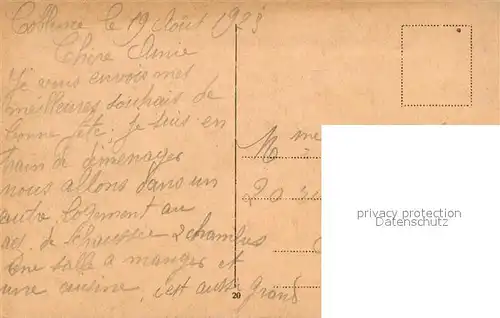 le 19 Août 1923
Chère Amie
Je vous envois mes
meilleures souhais de
bonne fête. je suis en
train de déménager
nous allons dans un
autre logement au
de chaussée 2 chambres
une salle a manger et
une cuisine, c'est aussi grand
20
Mme
20 rue
privacy protection
Datenschutz